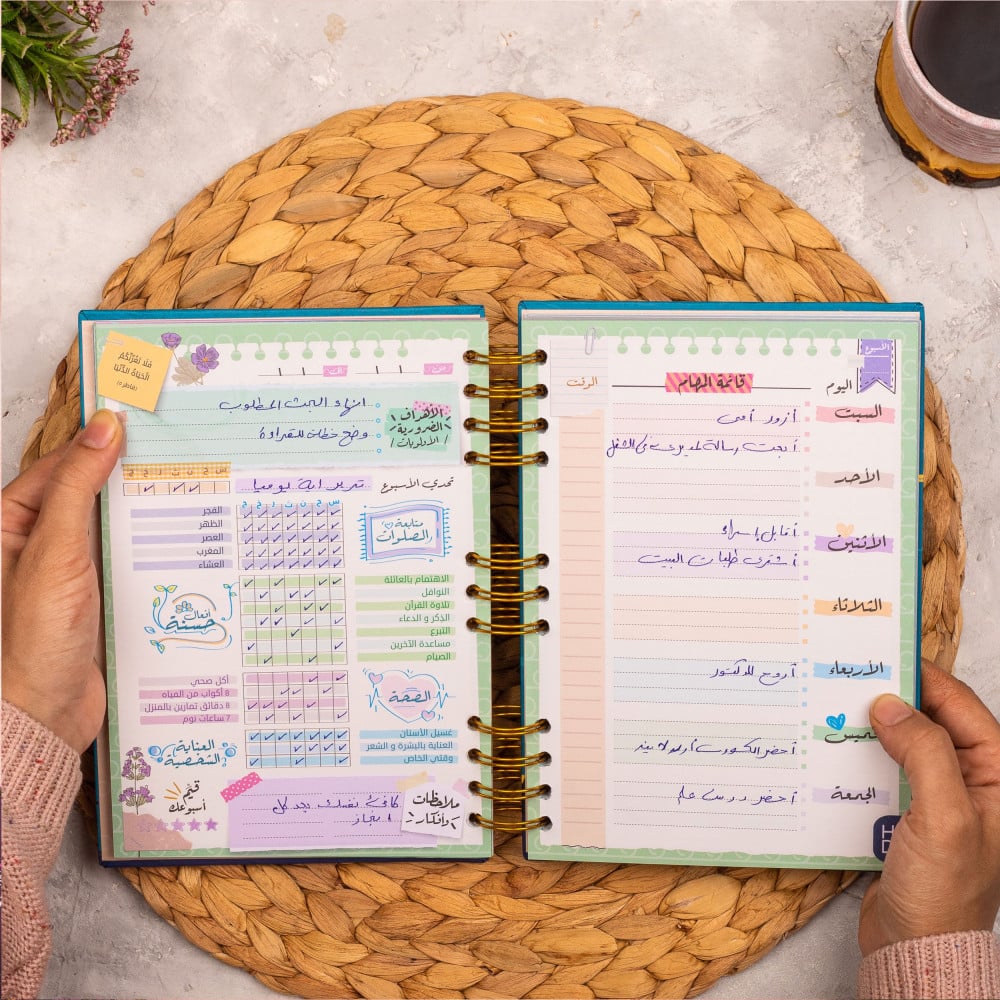 الأسبوع
اليوم
قائمة المهام
الوقت
السبت
أزور أمي
أبعت رسالة لمديري في الشغل
الأحد
الأثنين
أقابل إسراء
أشتري طلبات البيت
الثلاثاء
الأربعاء
أروح للدكتور
خميس
أحضر الكورس أونلاين
الجمعة
أحضر درس علم
من /
إلى /
فَلَا تَغُرَّنَّكُمُ
الْحَيَاةُ الدُّنْيَا
(فاطر ٥)
الأهداف
الضرورية
/ الأولويات /
انهاء البحث المطلوب
وضع خطة للقراءة
تحدي الأسبوع
تدبر آية يوميا...
س ح ن ث ر خ ج
متابعة
الصلوات
س ح ن ث ر خ ج
الفجر
الظهر
العصر
المغرب
العشاء
أفعال
حسنة
الاهتمام بالعائلة
النوافل
تلاوة القرآن
الذكر و الدعاء
التبرع
مساعدة الآخرين
الصيام
الصحة
أكل صحي
8 أكواب من المياه
8 دقائق تمارين بالمنزل
7 ساعات نوم
العناية
الشخصية
غسيل الأسنان
العناية بالبشرة و الشعر
وقتي الخاص
قيّم
أسبوعك
ملاحظات
وأفكار
كافئ نفسك بعد كل
إنجاز..